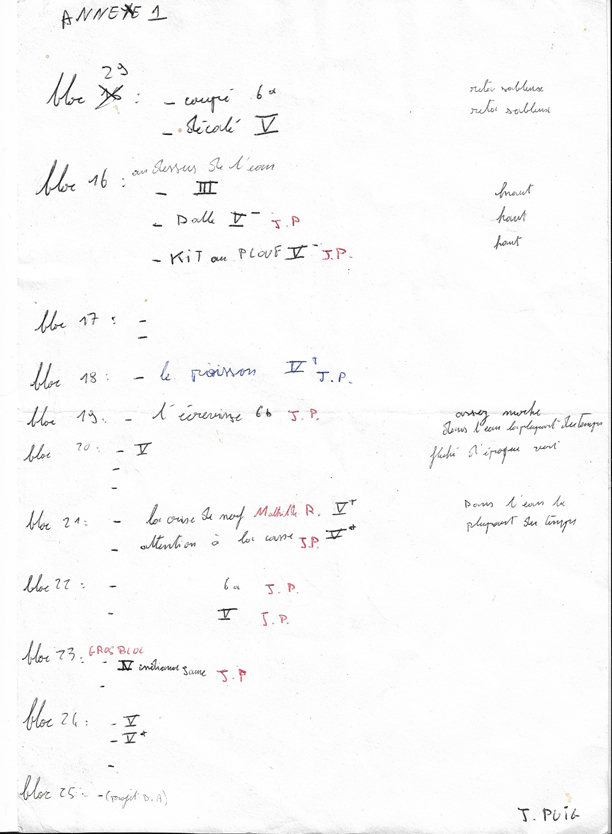 ANNEXE 1
29
bloc 16 : - coupé 6a retor sableuse
- décalé V retor sableuse
bloc 16 : au dessus de l'eau
- III haut
- Dalle V- J.P haut
- KiT au PLOUF V- J.P. haut
bloc 17 : -
-
bloc 18 : - le poisson J.P.
bloc 19 : - l'écrevisse 6b J.P. assez moche
dans l'eau la plupart du temps
bloc 20 - V fléché d'époque vert
-
-
bloc 21 : - la crise de nerf Mathilde R. V+ Dans l'eau la
plupart du temps
- attention à la casse J.P. V+
bloc 22 : - 6a J.P.
- V J.P.
bloc 23 : GROS BLOC
- IV J.P
-
bloc 24 : - V
- V+
-
bloc 25 : - (projet D.A)
J. PUIG